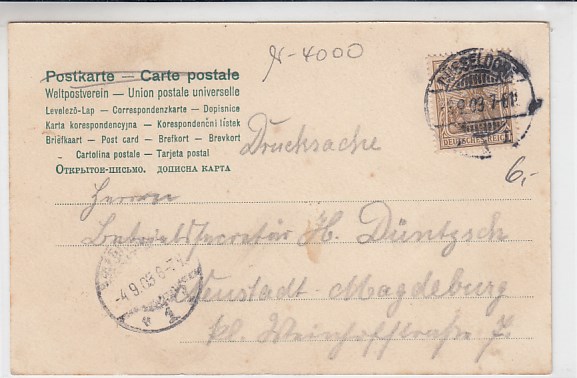 N-4000
Postkarte — Carte postale
Weltpostverein — Union postale universelle
Levelező-Lap — Correspondenzkarte — Dopisnice
Karta korespondencyjna — Korespondenční lístek
Briefkaart — Post card — Brefkort — Brevkort
Cartolina postale — Tarjeta postal
Открытое-письмо. дописна карта
DÜSSELDORF
9.03.7-8
1
DEUTSCHES REICH
6,-
Drucksache
Herrn
Betriebssecretär H. Düntzsch
Neustadt-Magdeburg
kl. Weinhofstraße 7.
-4.9.03.6-7
1